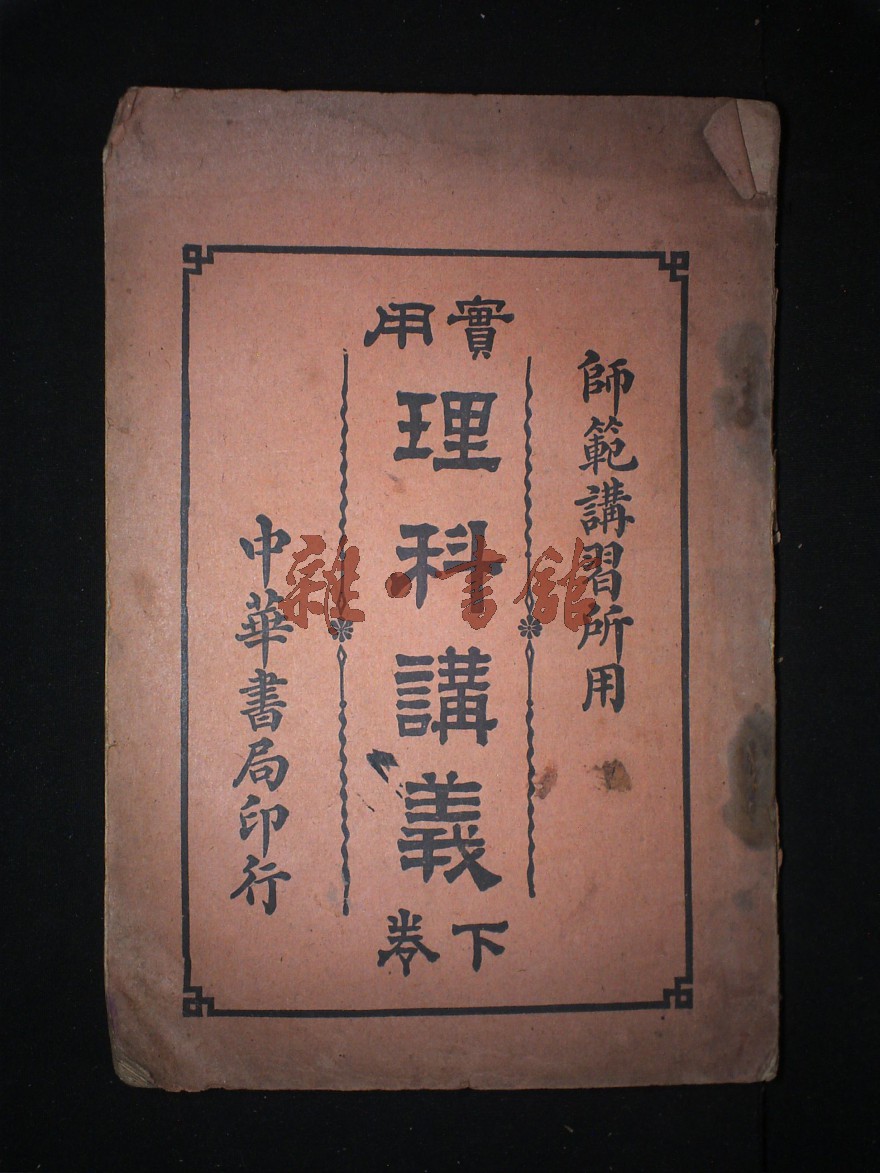 師範講習所用
實用
理科講義
下卷
中華書局印行
雜·書館